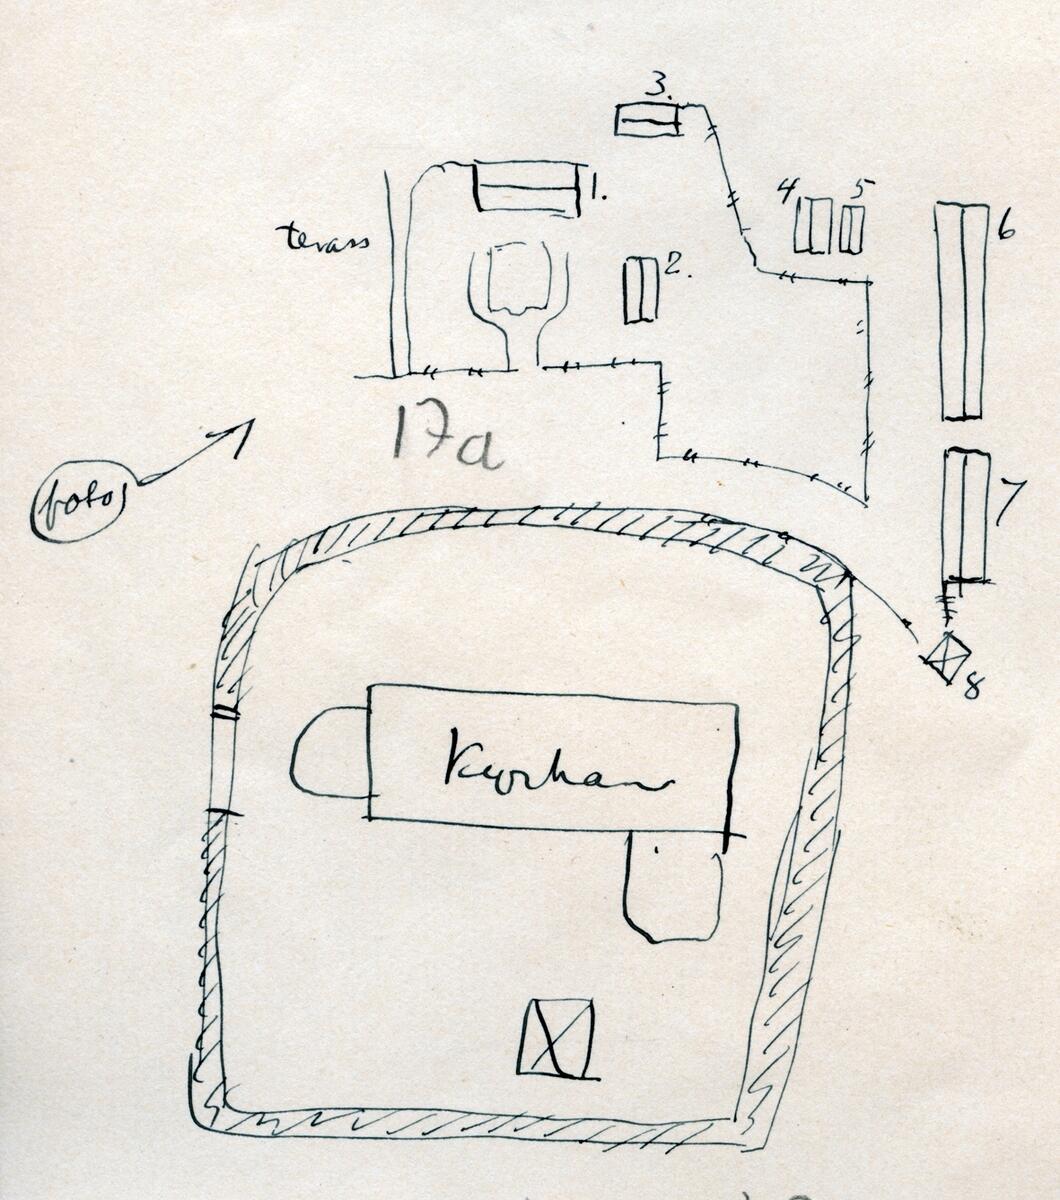 3.
1.
4 5
6
terass
2.
17a
fotos
7
8
Kyrkan